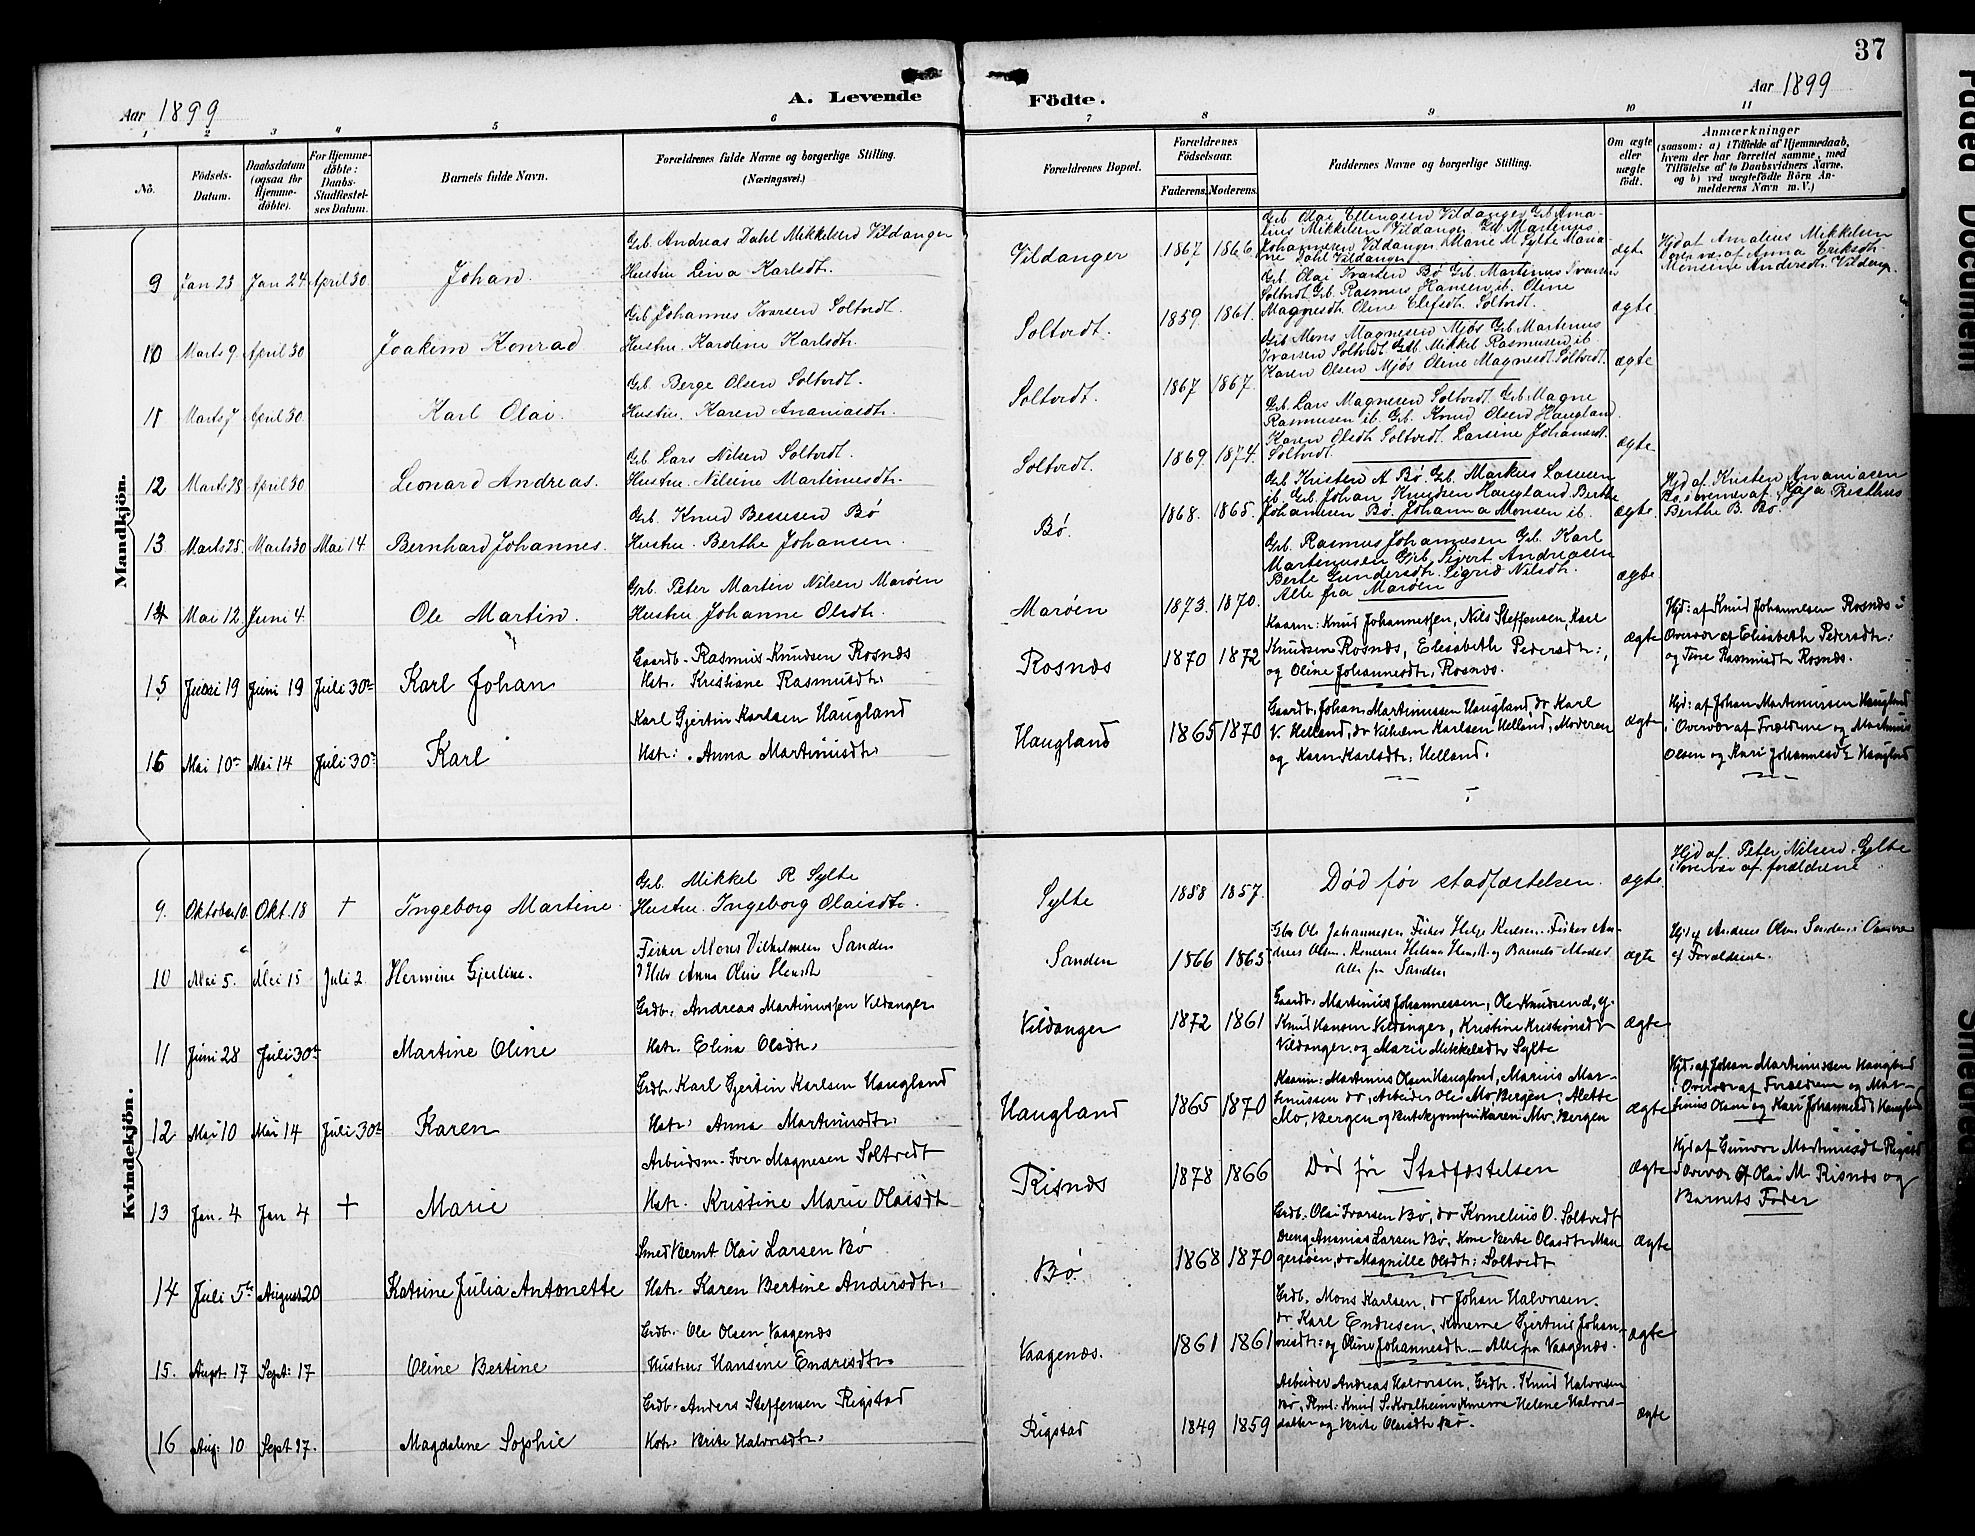 37
Aar 1899
A. Levende Födte.
Aar 1899
1 2 3 4 5 6 7 8 9 10 11
No.
Födsels-Datum.
Daabsdatum (ogsaa for Hjemme-döbte).
For Hjemme-döbte: Daabs-Stadfæstel-ses Datum.
Barnets fulde Navn.
Forældrenes fulde Navne og borgerlige Stilling. (Næringsvei.)
Forældrenes Bopæl.
Forældrenes Födselsaar.
Faderens. Moderens.
Faddernes Navne og borgerlige Stilling.
Om ægte eller uægte födt.
Anmærkninger
(saasom: a) i Tilfælde af Hjemmedaab, hvem der har forrettet samme, med Tilföielse af to Daabsvidners Navne, og b) ved uægtefödte Börn An-melderens Navn m. V.)
Mandkjön.
9 Jan 23 Jan 24 April 30 Johan
Grb. Andreas Dahl Mikkelsen Vildanger
Hustru Lina Karlsdt.
Vildanger 1867 1866
Grb. Olai Ellingsen Vildanger Grb. Ama-
lius Mikkelsen Vildanger Grb. Martenus
Johannesen Vildanger Marie M Sylte Maria-
ne Dahl Vildanger
ægte
Hjd af Amalius Mikkelsen
overvær af Anna Eriksdt.
Monsine Andersdt. Vildang.
10 Marts 9 April 30 Joakim Konrad
Grb Johannes Ivarsen Soltvedt.
Hustru. Karoline Karlsdtr.
Soltvedt. 1859. 1861.
Grb. Olai Ivarsen Bö Grb. Martinus Ivarsen
Soltvedt Grb. Rasmus Hansen ib. Oline
Magnesdt. Oline Olefsdt. Soltvedt.
ægte.
11 Marts 7 April 30 Karl Olai.
Grb. Berge Olsen Soltvedt.
Hustru. Karen Ananiasdtr.
Soltvedt. 1867 1867.
Grb Mons Magnesen Mjøs Grb. Martenus
Ivarsen Soltvedt Grb. Mikkel Rasmusen ib
Karen Olsen Mjøs Oline Magnesdt. Soltvedt.
ægte
12 Marts 28 April 30 Leonard Andreas.
Grb. Lars Nilsen Soltvedt.
Hustru. Nilsine Martinusdtr.
Soltvedt. 1869. 1874.
Grb. Lars Magnesen Soltvedt. Grb. Magne
Rasmusen ib. Grb. Knud Olsen Haugland.
Karen Olsdt. Soltvedt. Larsine Johannesdt.
Soltvedt.
ægte
13 Marts 25. Marts 30 Mai 14 Bernhard Johannes.
Grb. Knud Bessesen Bö
Hustru. Berthe Johansen.
Bö. 1868. 1865.
Grb Kristen A Bø. Grb. Markus Larsen
ib. Grb. Johan Knudsen Haugland Berthe
Johannesen Bø. Johanna Monsen ib.
ægte.
Hjd af Kristen Ananiasen
Bø. i overvær af Kaja Resthus
Berthe B. Bø.
14 Mai 12 Juni 4. Ole Martin.
Grb. Peter Martin Nilsen Maröen
Hustru Johanne Olsdt.
Maröen 1873. 1870.
Grb. Rasmus Johannesen Grb. Karl
Martenusen Grb. Sigvert Andreasen
Berte Gundersdt. Sigrid Nilsdt.
Alle fra Maröen
ægte
15 Juni 19 Juni 19 Juli 30te Karl Johan
Gaardb. Rasmus Knudsen Rosnæs
Hstr. Kristiane Rasmusdtr.
Rosnæs 1870 1872
Kaarm: Knud Johannessen, Nils Steffensen, Karl
Knudsen Rosnæs, Elisabeth Pedersdtr:,
og Oline Johannesdtr, Rosnæs.
ægte
Hjd: af Knud Johannesen Rosnæs i
Overvær af Elisabeth Pedersdtr:
og Tine Rasmusdtr Rosnæs.
16 Mai 10de Mai 14 Juli 30te Karl
Karl Gjertin Karlsen Haugland
Hstr: Anna Martinusdtr
Haugland 1865 1870
Gaardb. Johan Martinussen Haugland, do Karl
V. Helland, do Vilhelm Karlsen Helland, Moderen
og Karen Karlsdtr: Helland.
ægte
Hjd: af Johan Martinussen Haugland
i Overvær af Forældrene og Martinus
Olsen og Kari Johannesdt Haugland
Kvindekjön.
9. Oktober 10. Okt. 18 † Ingeborg Martine.
Grb. Mikkel R Sylte
Hustru. Ingeborg Olaisdtr.
Sylte 1858 1857.
Død før stadfæstelsen.
ægte
Hjd af. Peter Nilsen Sylte
i overvær af forældrene
10 Mai 5. Mai 15 Juli 2. Hermine Gjertine.
Fisker Mons Vilhelmsen Sanden
Anna Oline
Sanden 1866 1865
Gbr Ole Johannesen Fisker Helge Knudsen. Fisker An-
dreas Olsen. Konerne Helena og Barnets Moder.
Alle fra Sanden
ægte
Hjd af Andreas Olsen Sanden i Overvær
af Forældrene.
11 Juni 28 Juli 30te Martine Oline
Grdb. Andreas Martinussen Vildanger
Hstr. Elina Olsdtr.
Vildanger 1872 1861
Gaardb. Martinus Johannessen, Ole Knudsen d. y.
Knud Hansen Vildanger, Kristine Kristiansdt
Vildanger og Marie Mikkelsdtr Sylte
ægte
12 Mai 10 Mai 14 Juli 30te Karen
Grdb. Karl Gjertin Karlsen Haugland
Hstr. Anna Martinusdtr.
Haugland 1865 1870
Kaarm: Martinus Olsen Haugland, Marius Mar-
tinussen do, Arbeider Ole Mo Bergen, Alette
Mo, Bergen og Butikjomfru Karen Mo, Bergen
ægte
Hjd: af Johan Martinussen Haugland
i Overvær af Forældrene og Mar-
tinius Olsen og Kari Johannesdt Haugland
13 Jan. 4 Jan 4 † Marie
Arbeidsm. Iver Magnesen Soltvedt
Hstr. Kristine Marie Olaisdt
Risnæs 1878 1866
Død før Stadfæstelsen
ægte
Hjd af Gunvor Martinusdt Rigstad
i Overvær af Olai M. Risnæs og
Barnets Fader
14 Juli 5te August 20 Katrine Julia Antonette
Smed Bernt Olai Larsen Bø
Hstr. Karen Bertine Andersdtr.
Bø 1868 1870
Grdb. Olai Ivarsen Bø, do Kornelius O. Soltvedt
Dreng Ananias Larsen Bø, Kone Berte Olasdtr Man-
gersøen, do Magnille Olsdt: Soltvedt
ægte
15. August 17 Sept: 17 Oline Bertine
Grdb. Ole Olsen Vaagenæs
Hustru Hansine Endresdtr.
Vaagenæs. 1861 1861
Grdb. Mons Karlsen, do Johan Halvorsen.
do Karl Endresen, Konerne Gjertine Johan-
nesdtr: og Oline Johannesdt. – Alle fra Vaagenæs.
ægte
16 Aug. 10 Sept 17. Magdalene Sophie
Grdb. Anders Steffensen Rigstad
Hstr. Brite Halvorsdtr.
Rigstad 1849 1859
Arbeider Andreas Halvorsen, Grdbr. Knud Halvorsen
Bø, Knud S. Kvalheim Konerne Helene Halvors-
datter og Brite Olaisdtr Bø.
ægte
Faded Document
Smeared